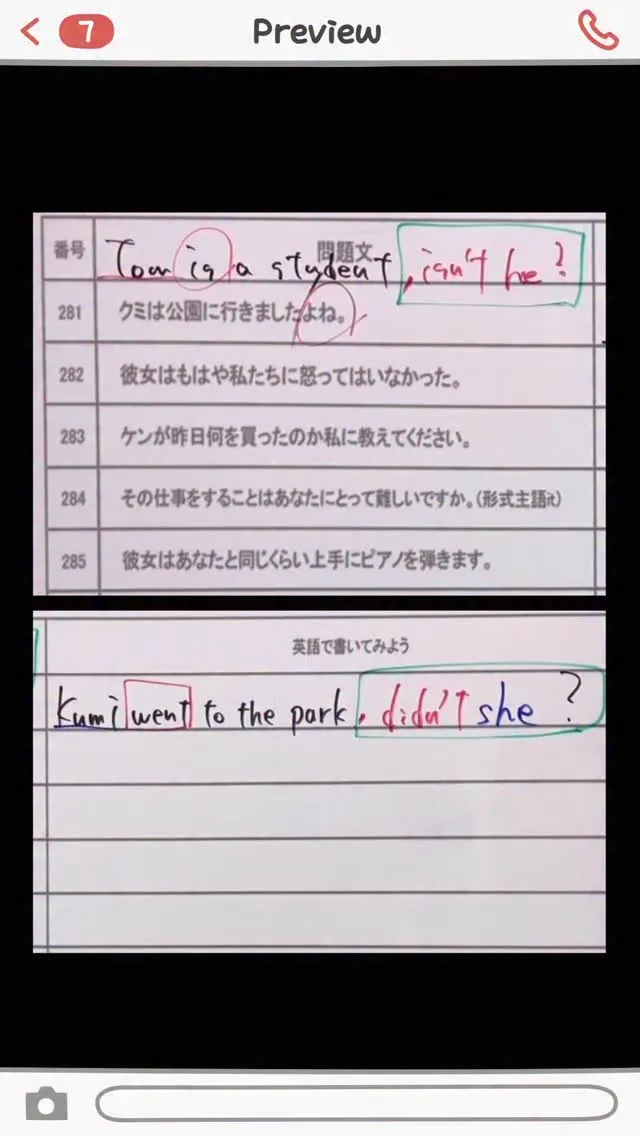 7 Preview
番号 問題文
Tom is a student , isn't he?
281 クミは公園に行きましたよね。
282 彼女はもはや私たちに怒ってはいなかった。
283 ケンが昨日何を買ったのか私に教えてください。
284 その仕事をすることはあなたにとって難しいですか。(形式主語it)
285 彼女はあなたと同じくらい上手にピアノを弾きます。
英語で書いてみよう
Kumi went to the park , didn't she ?